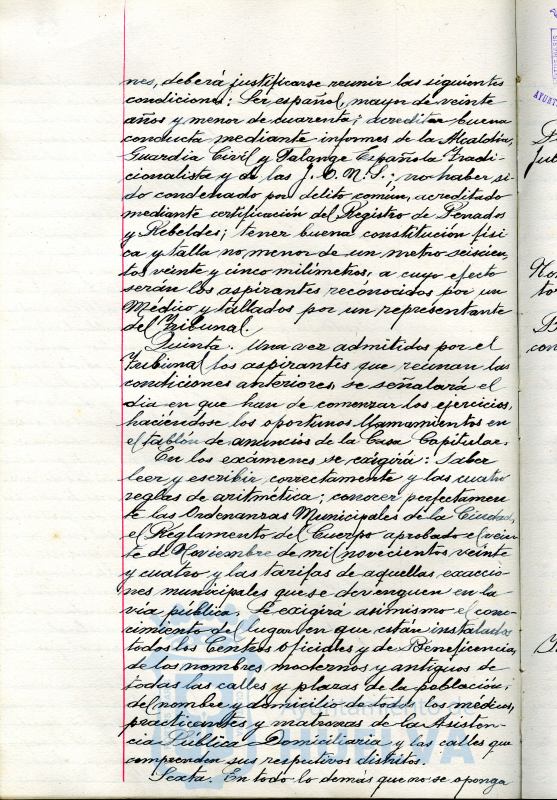 nes, deberá justificarse reunir las siguientes
condiciones: Ser español, mayor de veinte
años y menor de cuarenta; acreditar buena
conducta mediante informes de la Alcaldía,
Guardia Civil y Falange Española Tradi-
cionalista y de las J.O.N.S.; no haber si-
do condenado por delito común, acreditado
mediante certificación del Registro de Penados
y Rebeldes; tener buena constitución físi-
ca y talla no menor de un metro seiscien-
tos veinte y cinco milímetros, a cuyo efecto
serán los aspirantes reconocidos por un
Médico y tallados por un representante
del Tribunal.
Quinta. Una vez admitidos por el
Tribunal los aspirantes que reunan las
condiciones anteriores, se señalará el
dia en que han de comenzar los ejercicios,
haciéndose los oportunos llamamientos en
el tablón de anuncios de la Casa Capitular.
En los exámenes se exigirá: Saber
leer y escribir correctamente y las cuatro
reglas de aritmética; conocer perfectamen-
te las Ordenanzas Municipales de la Ciudad,
el Reglamento del Cuerpo aprobado el vein-
te de Noviembre de mil novecientos veinte
y cuatro y las tarifas de aquellas exaccio-
nes municipales que se devenguen en la
via pública. Se exigirá asimismo el cono-
cimiento del lugar en que están instalados
todos los Centros Oficiales y de Beneficencia,
de los nombres modernos y antiguos de
todas las calles y plazas de la población;
del nombre y domicilio de todos los médicos,
practicantes y matronas de la Asisten-
cia Pública Domiciliaria y las calles que
comprenden sus respectivos distritos.
Sexta. En todo lo demás que no se oponga
Ayuntamiento
HUELVA